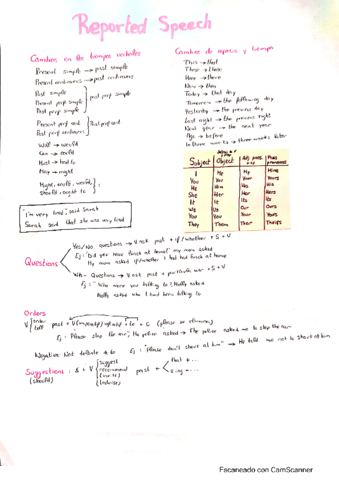 Reported Speech
Cambios en los tiempos verbales
Present simple → past simple
Present continuous → past continuous
Past simple
Present perf simple } past perf simple
Past perf simple
Present perf cont
Past perf continuous } Past perf cont
Will → would
Can → could
Must → had to
May → might
Might, could, would,
should, ought to
"I'm very tired", said Sarah
Sarah said that she was very tired
Cambios de espacio y tiempo
This → that
These → those
Here → there
Now → then
Today → that day
Tomorrow → the following day
Yesterday → the previous day
Last night → the previous night
Next year → the next year
Ago → before
In three weeks → three weeks later
Subject Object
I Me My Mine
You You Your Yours
He Him His His
She Her Her Hers
It It Its Its
We Us Our Ours
You You Your Yours
They Them Their Theirs
Questions
Yes/No questions → V ask past + if/whether + S + V
Ej: "Did you have lunch at home?" my mom asked
My mom asked if/whether I had had lunch at home
Wh- Questions → V ask past + wh- + S + V
Ej: "Who were you talking to?" asked
asked who I had been talking to
Orders
V order tell past + + to + C (please se elimina)
Ej: "Please stop the car", the police asked → The police asked me to stop the car
Negative: Not delante de to Ej: "Please don't shout at him" → He told me not to shout at him
Suggestions: S + V { suggest past + { that + ...
(should) recommend V-ing ...
(invite)
(advise)
Escaneado con CamScanner